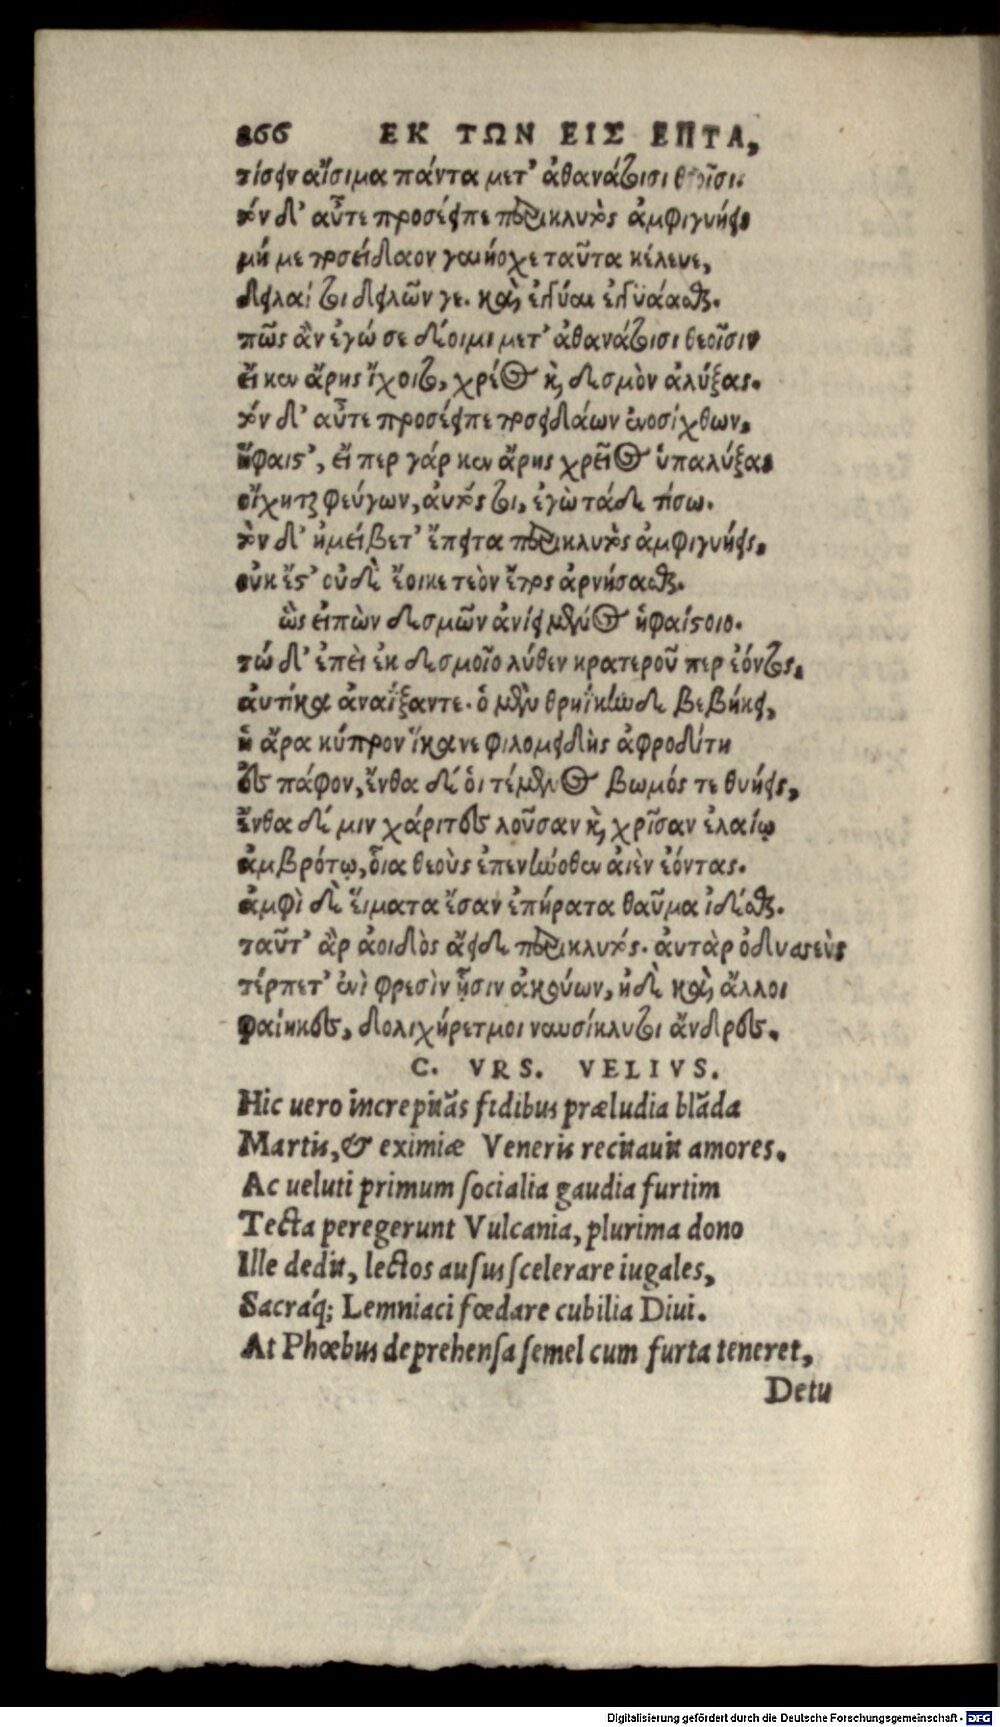 266 ΕΚ ΤΩΝ ΕΙΣ ΕΠΤΑ,
τίσειν αἴσιμα πάντα μετ' ἀθανάτοισι θεοῖσι.
τὸν δ' αὖτε προσέειπε περικλυτὸς ἀμφιγυήεις
μή με ποσείδαον γαιήοχε ταῦτα κέλευε,
δειλαί τοι δειλῶν γε. καὶ ἐγύαι ἐγυάασθαι.
πῶς ἂν ἐγώ σε δέοιμι μετ' ἀθανάτοισι θεοῖσιν
εἴ κεν ἄρης ἴχοιτο, χρέος καὶ δεσμὸν ἀλύξας.
τὸν δ' αὖτε προσέειπε ποσειδάων ἐνοσίχθων,
ἥφαιστ', εἴ περ γάρ κεν ἄρης χρεῖος ὑπαλύξας
οἴχηται φεύγων, ἀυτός τοι, ἐγὼ τάδε τίσω.
τὸν δ' ἠμείβετ' ἔπειτα περικλυτὸς ἀμφιγυήεις,
οὐκ ἔστ' οὐδὲ ἔοικε τεὸν ἔπος ἀρνήσασθαι.
ὣς εἰπὼν δεσμῶν ἀνίει μένος ἡφαίστοιο.
τώ δ' ἐπεὶ ἐκ δεσμοῖο λύθεν κρατεροῦ περ ἐόντος,
ἀυτίκα ἀναΐξαντε. ὁ μὲν θρηΐκηνδε βεβήκει,
ἡ ἄρα κύπρον ἵκανε φιλομειδὴς ἀφροδίτη
ἐς πάφον, ἔνθα δέ ὁι τέμενος βωμός τε θυήεις,
ἔνθα δέ μιν χάριτες λοῦσαν καὶ χρῖσαν ἐλαίῳ
ἀμβρότῳ, ὅια θεοὺς ἐπενήνοθεν αἰὲν ἐόντας.
ἀμφὶ δὲ ἕιματα ἕσαν ἐπήρατα θαῦμα ἰδέσθαι.
ταῦτ' ἂρ ἀοιδὸς ἄειδε περικλυτός. ἀυτὰρ ὀδυσσεὺς
τέρπετ' ἐνὶ φρεσὶν ᾗσιν ἀκούων, ἠδὲ καὶ ἄλλοι
φαίηκες, δολιχήρετμοι ναυσίκλυτοι ἄνδρες.
C. VRS. VELIVS.
Hic uero increpitãs fidibus præludia blãda
Martis, & eximiæ Veneris recitauit amores.
Ac ueluti primum socialia gaudia furtim
Tecta peregerunt Vulcania, plurima dono
Ille dedit, lectos ausus scelerare iugales,
Sacráq; Lemniaci fœdare cubilia Diui.
At Phœbus deprehensa semel cum furta teneret,
Detu
Digitalisierung gefördert durch die Deutsche Forschungsgemeinschaft - DFG